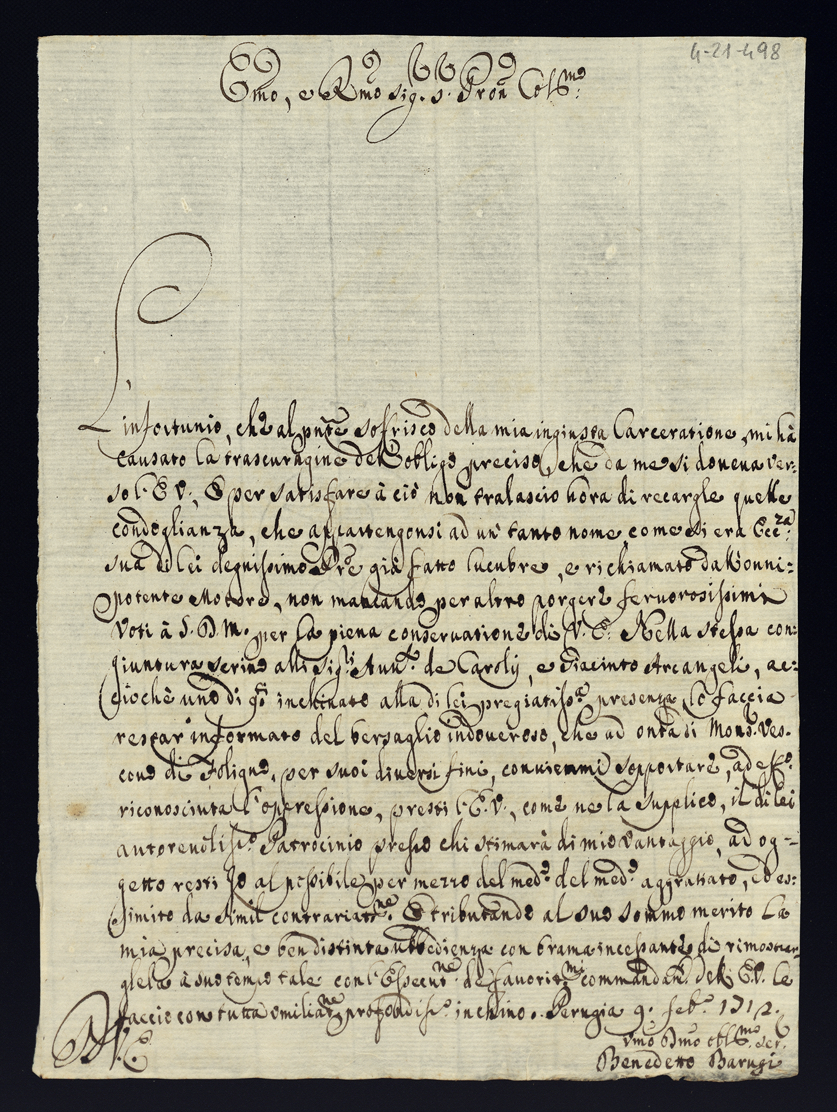 4-21-498
Emo, e Rmo Sig. S. Pron Colmo:
L'infortunio, che al pnte soffrisco della mia ingiusta Carceratione, mi hà
causato la trascuragine dell'obligo preciso, che da me si doueua ver-
so l'E.V., E per satisfare à ciò non tralascio hora di recargle quelle
condoglianza, che appartengonsi ad un tanto nome, come si era l'Ecc.za
sua di lei degnissimo Pre già fatto lucubre, e richiamato dall'onni=
potente Motore, non mancando per altro porgere feruorosissimi
Voti à S. D. M. per la piena conseruatione di V. E. Nella stessa con=
giuntura scriuo alli Sig.ri Aunt.o de Carolij, e Giacinto Arcangeli, ac=
cioche uno di qsi inchinato alla di lei pregiatiss.a presenza lo faccia
restar informato del bersaglio indoueroso, che ad onta di Mons. Ves-
couo di Foligno, per suoi diuersi fini, conuiemmi sopportare, ad eff.o
riconosciuta l'oppressione, presti l'E.V., come ne la supplico, il di lei
autoreuoliss.o Patrocinio presso chi stimarà di mio vantaggio, ad og-
getto resti Io al possibile per mezzo del med.o del med.o aggratiato, ed es=
simito da simil contrariat.ne. E tributando al suo sommo merito la
mia precisa, e ben distinta ubbedienza con brama incessante di rimostrar-
glela à suo tempo tale con l'Essecut.ne de fauorit.mi commandam.ti dell'E.V. le
faccio con tutta umiliat.ne profondiss.o inchino. Perugia 9. feb.o 1712.
D. V. E.
Vmo Dmo obl.mo ser.
Benedetto Barugi